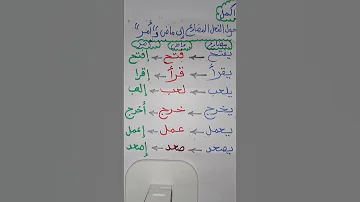 أكمل
حول الفعل المضارع إلى ماضي و "أمر"
مضارع ماض أمر
يفتح ← فتح ← إفتح
يقرأ ← قرأ ← إقرا
يلعب ← لعب ← إلعب
يخرج ← خرج ← أخرج
يعمل ← عمل ← إعمل
يصعد ← صعد ← إصعد